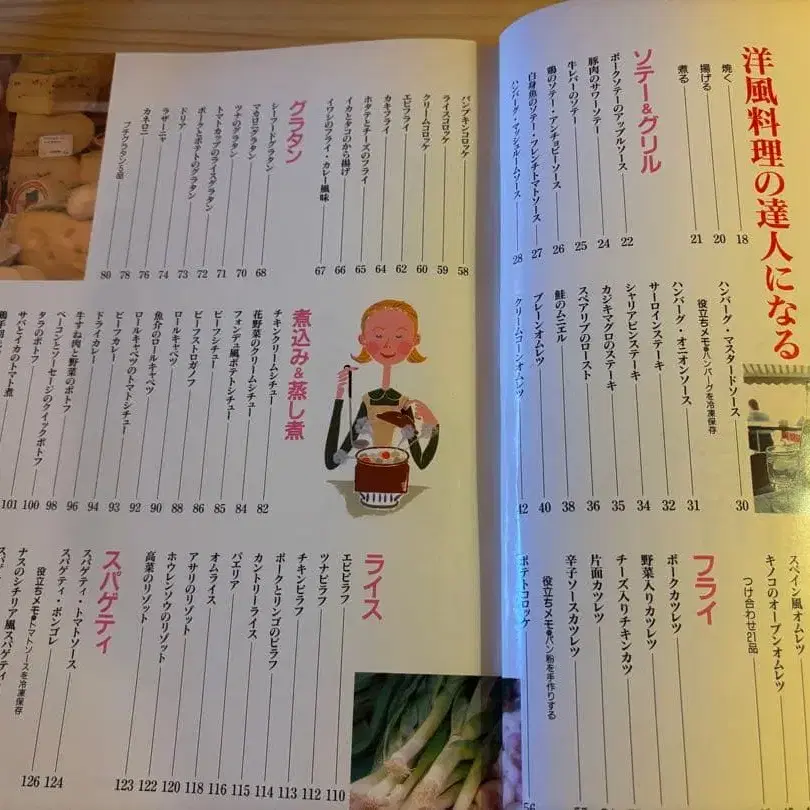 洋風料理の達人になる
焼く 18
揚げる 20
煮る 21
ソテー&グリル
ポークソテーのアップルソース 22
豚肉のサワーソテー 24
牛レバーのソテー 25
鶏のソテー・アンチョビーソース 26
白身魚のソテー・フレンチトマトソース 27
ハンバーグ・マッシュルームソース 28
ハンバーグ・マスタードソース 30
役立ちメモ●ハンバーグを冷凍保存
ハンバーグ・オニオンソース 31
サーロインステーキ 32
シャリアピンステーキ 34
カジキマグロのステーキ 35
スペアリブのロースト 36
鮭のムニエル 38
プレーンオムレツ 40
クリームコーンオムレツ 42
スペイン風オムレツ
キノコのオープンオムレツ
つけ合わせ21品
フライ
ポークカツレツ
野菜入りカツレツ
チーズ入りチキンカツ
片面カツレツ
辛子ソースカツレツ
役立ちメモ●パン粉を手作りする
ポテトコロッケ 56
パンプキンコロッケ 58
ライスコロッケ 59
クリームコロッケ 60
エビフライ 62
カキフライ 64
ホタテとチーズのフライ 65
イカとタコのから揚げ 66
イワシのフライ・カレー風味 67
グラタン
シーフードグラタン 68
マカロニグラタン 70
ツナのグラタン 71
トマトカップのライスグラタン 72
ポークとポテトのグラタン 73
ドリア 74
ラザーニャ 76
カネロニ 78
プチグラタン5品 80
煮込み&蒸し煮
チキンクリームシチュー 82
花野菜のクリームシチュー 84
フォンデュ風ポテトシチュー 85
ビーフシチュー 86
ビーフストロガノフ 88
ロールキャベツ 90
魚介のロールキャベツ 92
ロールキャベツのトマトシチュー 93
ビーフカレー 94
ドライカレー 96
牛すね肉と野菜のポトフ 98
ベーコンとソーセージのクイックポトフ 100
タラのポトフ 101
サバとイカのトマト煮
ライス
エビピラフ 110
ツナピラフ 112
チキンピラフ 113
ポークとリンゴのピラフ 114
カントリーライス 115
パエリア 116
オムライス 118
アサリのリゾット 120
ホウレンソウのリゾット 122
高菜のリゾット 123
スパゲティ
スパゲティ・トマトソース 124
スパゲティ・ボンゴレ 126
役立ちメモ●トマトソースを冷凍保存
ナスのシチリア風スパゲティ